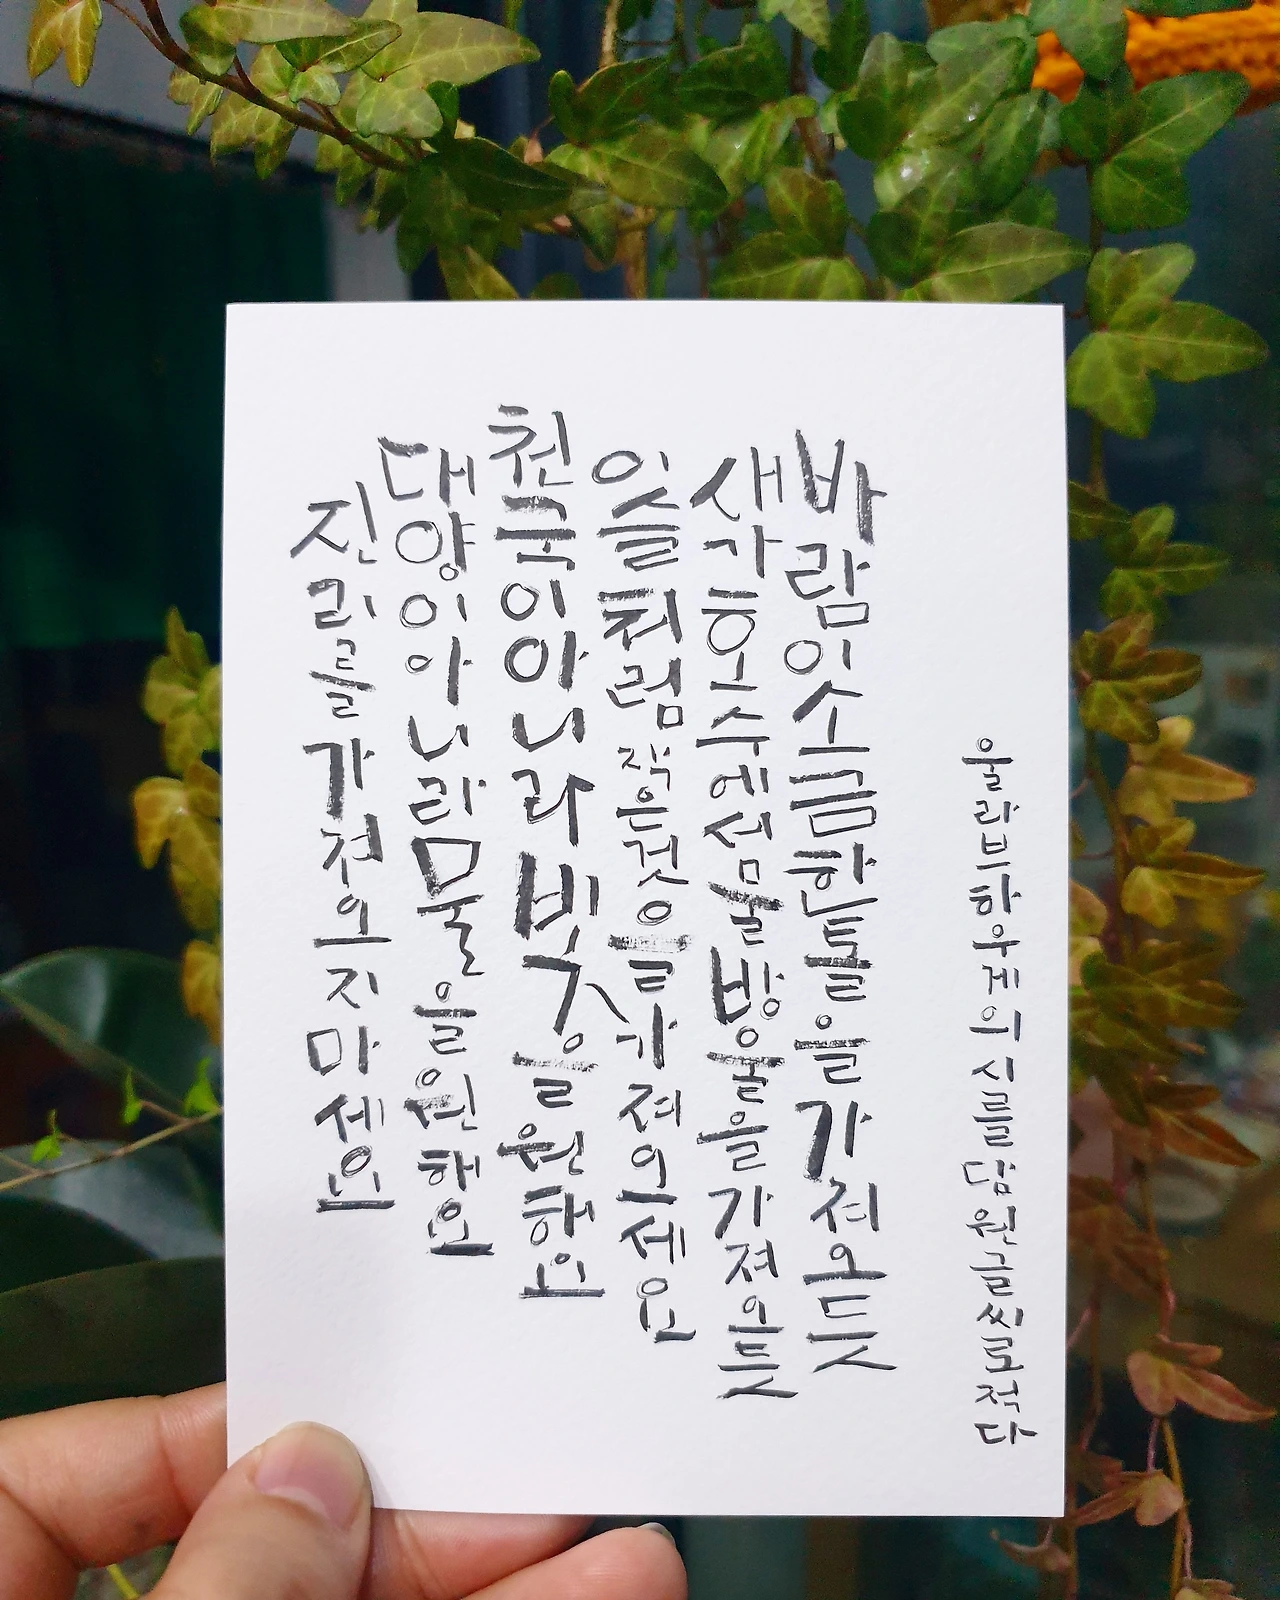 진리를 가져오지 마세요
대양이 아니라 물을 원해요
천국이 아니라 빛을 원해요
이슬처럼 작은 것을 가져오세요
새가 호수에서 물방울을 가져오듯
바람이 소금 한 톨을 가져오듯
울라브 하우게의 시를 담원 글씨로 적다